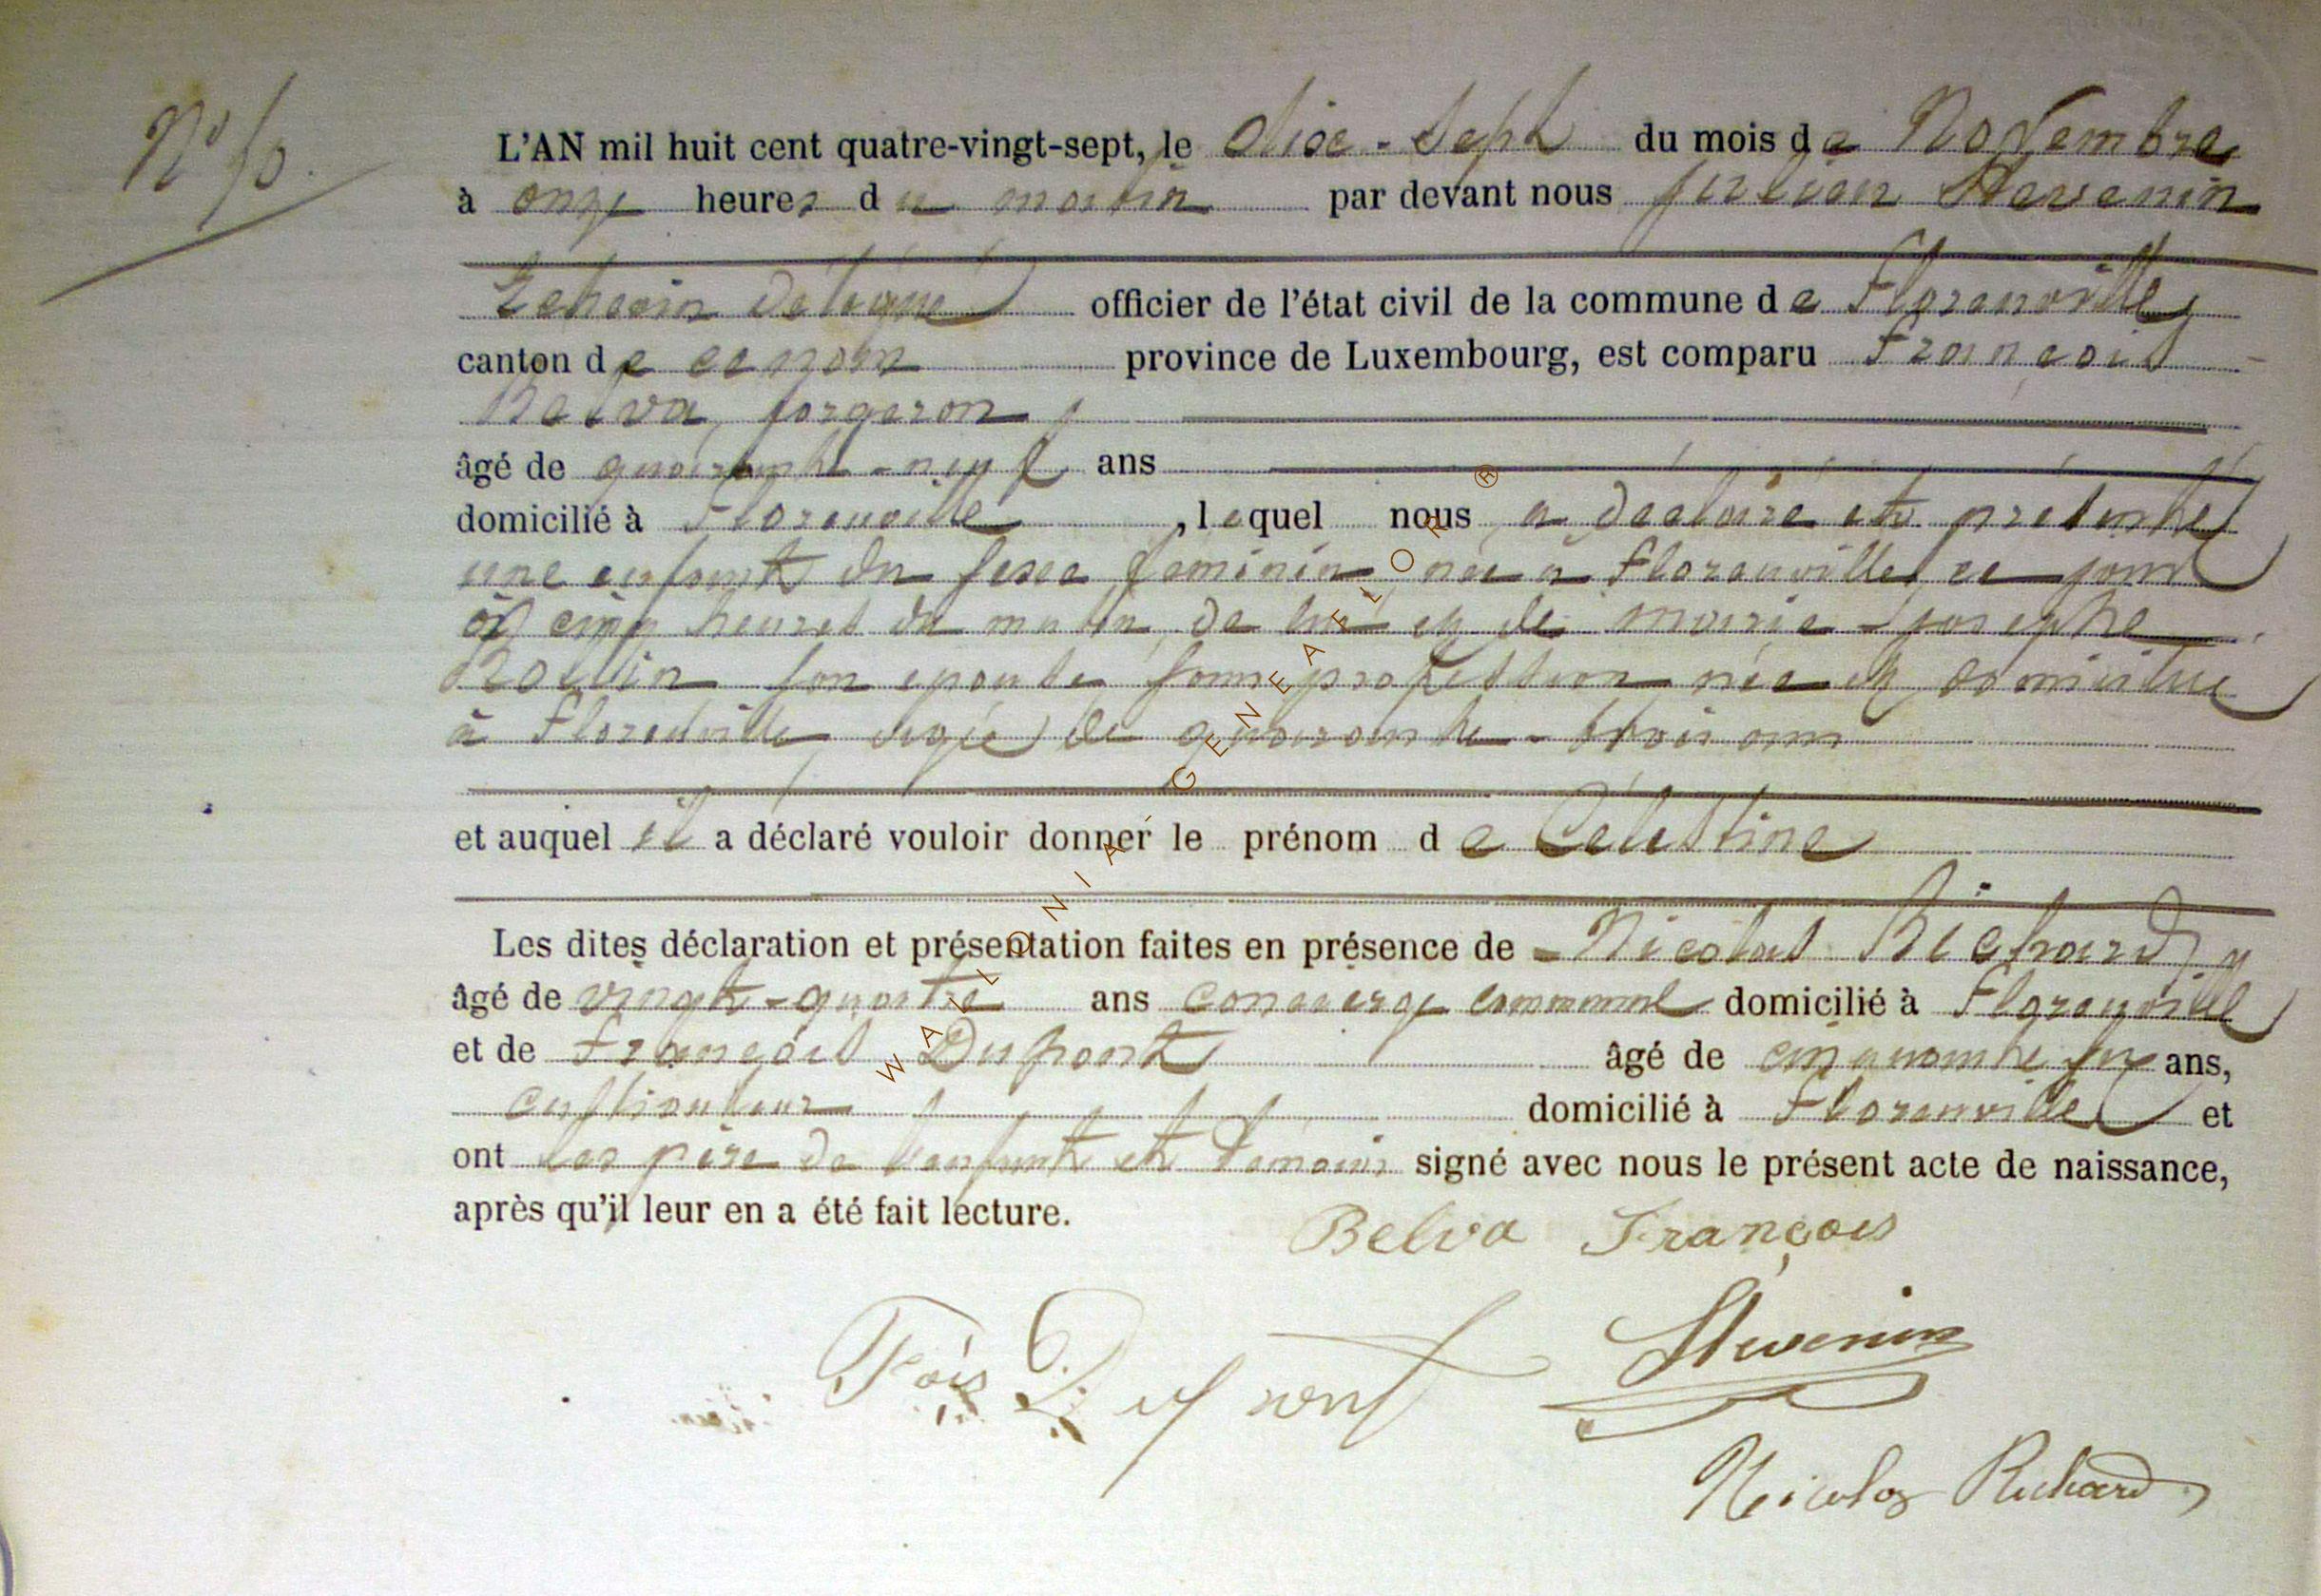 N° 50.
L'AN mil huit cent quatre-vingt-sept, le dixe-Sept du mois de Novembre
à onze heures du matin par devant nous Julien Stevenin
Echevin délégué officier de l'état civil de la commune de Florenville
canton de ce nom province de Luxembourg, est comparu François
Belva, forgeron
âgé de quarante-neuf ans
domicilié à Florenville, lequel nous a déclaré et présenté
une enfant du sexe feminin, née à Florenville, ce jour
à cinq heures du matin, de lui et de Marie-Josephe
son epouse sans profession née et domiciliée
à Florenville agée de quarante-trois ans
et auquel il a déclaré vouloir donner le prénom de Celestine
Les dites déclaration et présentation faites en présence de Nicolas Richard,
âgé de vingt-quatre ans concierge communal domicilié à Florenville
et de François Dupont âgé de cinquante ans,
cultivateur domicilié à Florenville et
ont les père de l'enfant et témoins signé avec nous le présent acte de naissance,
après qu'il leur en a été fait lecture.
Belva François
Fois Dupont
Stevenin
Nicolas Richard
WALLONIA GENEAFLOR ®